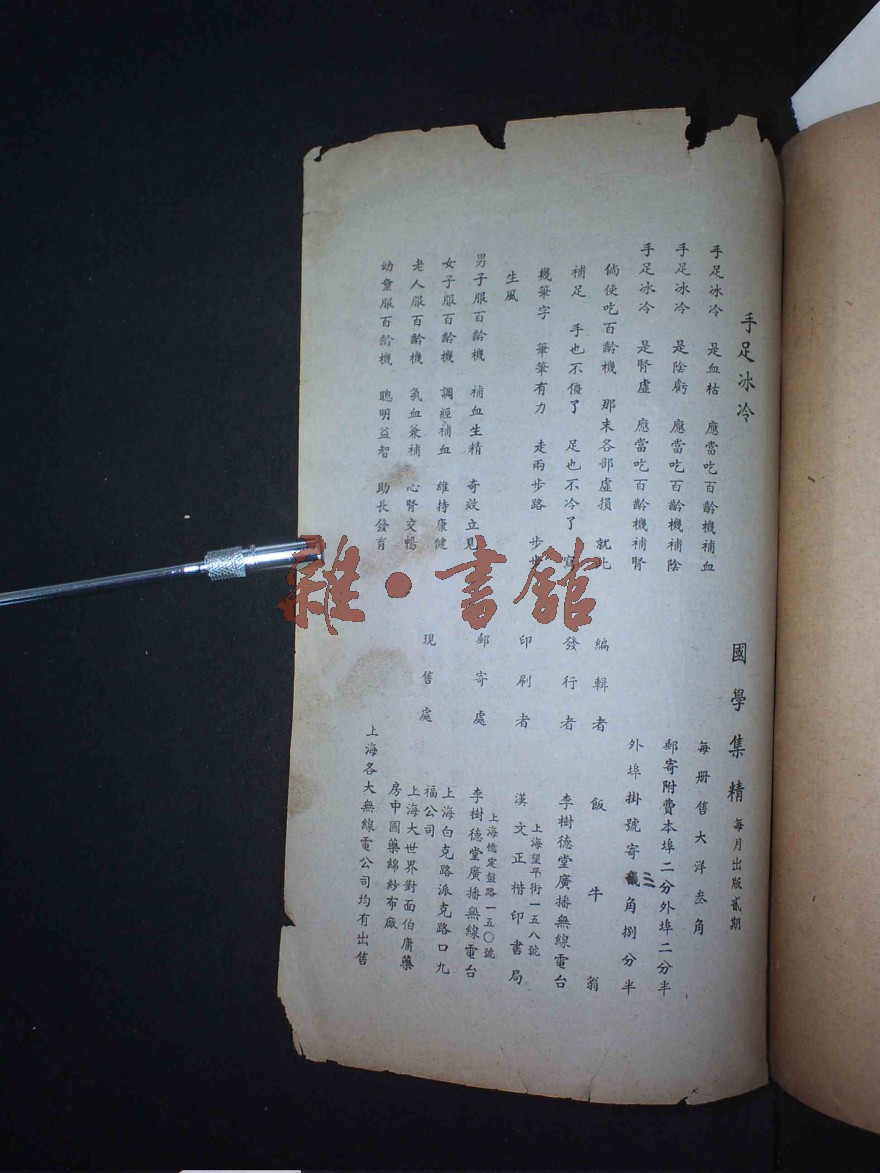 手足冰冷
手足冰冷 是血枯 應當吃百齡機補血
手足冰冷 是陰虧 應當吃百齡機補陰
手足冰冷 是腎虛 應當吃百齡機補腎
倘使吃百齡機 那末各部虛損 就此
補足 手也不僵了 足也不冷了 寫
幾筆字 筆筆有力 走兩步路 步步
生風
男子服百齡機 補血生精 奇效立見
女子服百齡機 調經補血 維持康健
老人服百齡機 氣血兼補 心腎交暢
幼童服百齡機 聰明益智 助長發育
國學集精 每月出版貳期
每册售大洋叁角
郵寄附費本埠二分外埠二分半
外埠掛號寄三角捌分半
編輯者 飯牛翁
發行者 李樹德堂廣播無線電台
上海望平街一五八號
印刷者 漢文正楷印書局
上海憶定盤路一五〇號
郵寄處 李樹德堂廣播無線電台
上海白克路派克路口九
福公司
現售處 上海大世界對面伯庸藥
房中國藥綿紗布廠
上海各大無線電公司均有出售
雜·書館